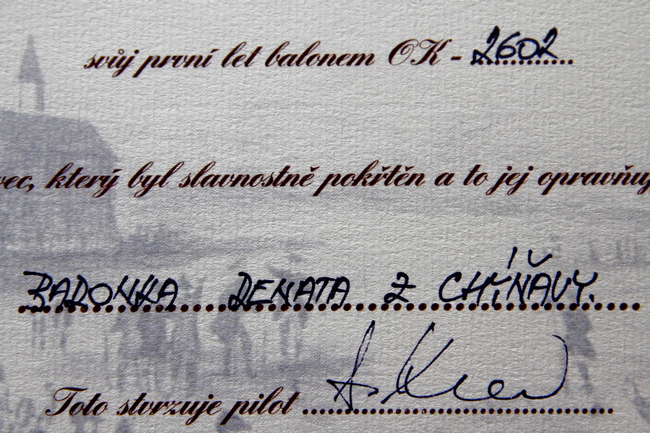 svůj první let balonem OK - 2602
vec, který byl slavnostně pokřtěn a to jej opravňuj
BARONKA RENATA Z CHÝŇAVY.
Toto stvrzuje pilot